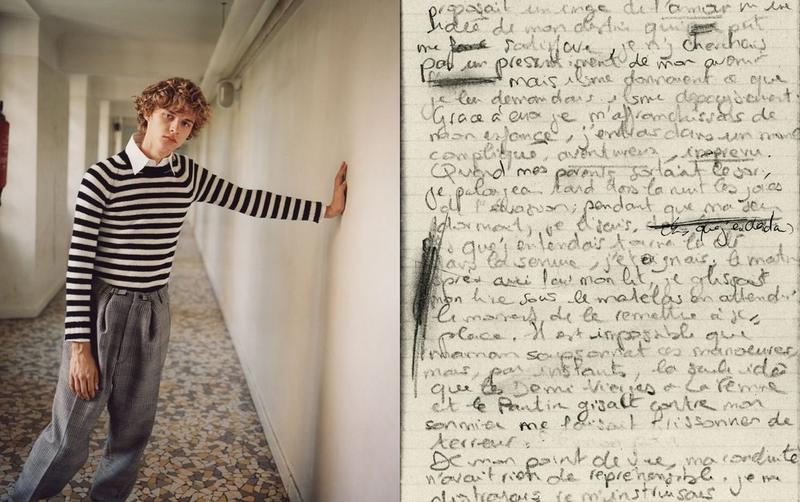 proposait un
idée de mon destin qui pût
me satisfaire, je n'y cherchais
pas un pressentiment de mon avenir
mais ils me donnaient ce que
je leur demandais, ils me dépaysaient.
Grâce à eux je m'affranchissais de
mon enfance, j'entrais dans un monde
compliqué, aventureux, imprévu.
Quand mes parents sortaient le soir,
je prolongeais tard dans la nuit les joies
de l'évasion; pendant que ma
dormait, je lisais,
que j'entendais tourner la clé
dans la serrure, j'éteignais. le matin
après avoir fait mon lit, je glissais
mon livre sous le matelas en attendant
le moment de le remettre à sa
place. Il est impossible que
maman soupçonnât ces manoeuvres,
mais, par instants, la seule idée
que les Demi-Vierges ou La Femme
et le Pantin gisait contre mon
sommier me faisait frissonner de
terreur.
De mon point de vue, ma conduite
n'avait rien de repréhensible. je me
distrayais je m'instruisais